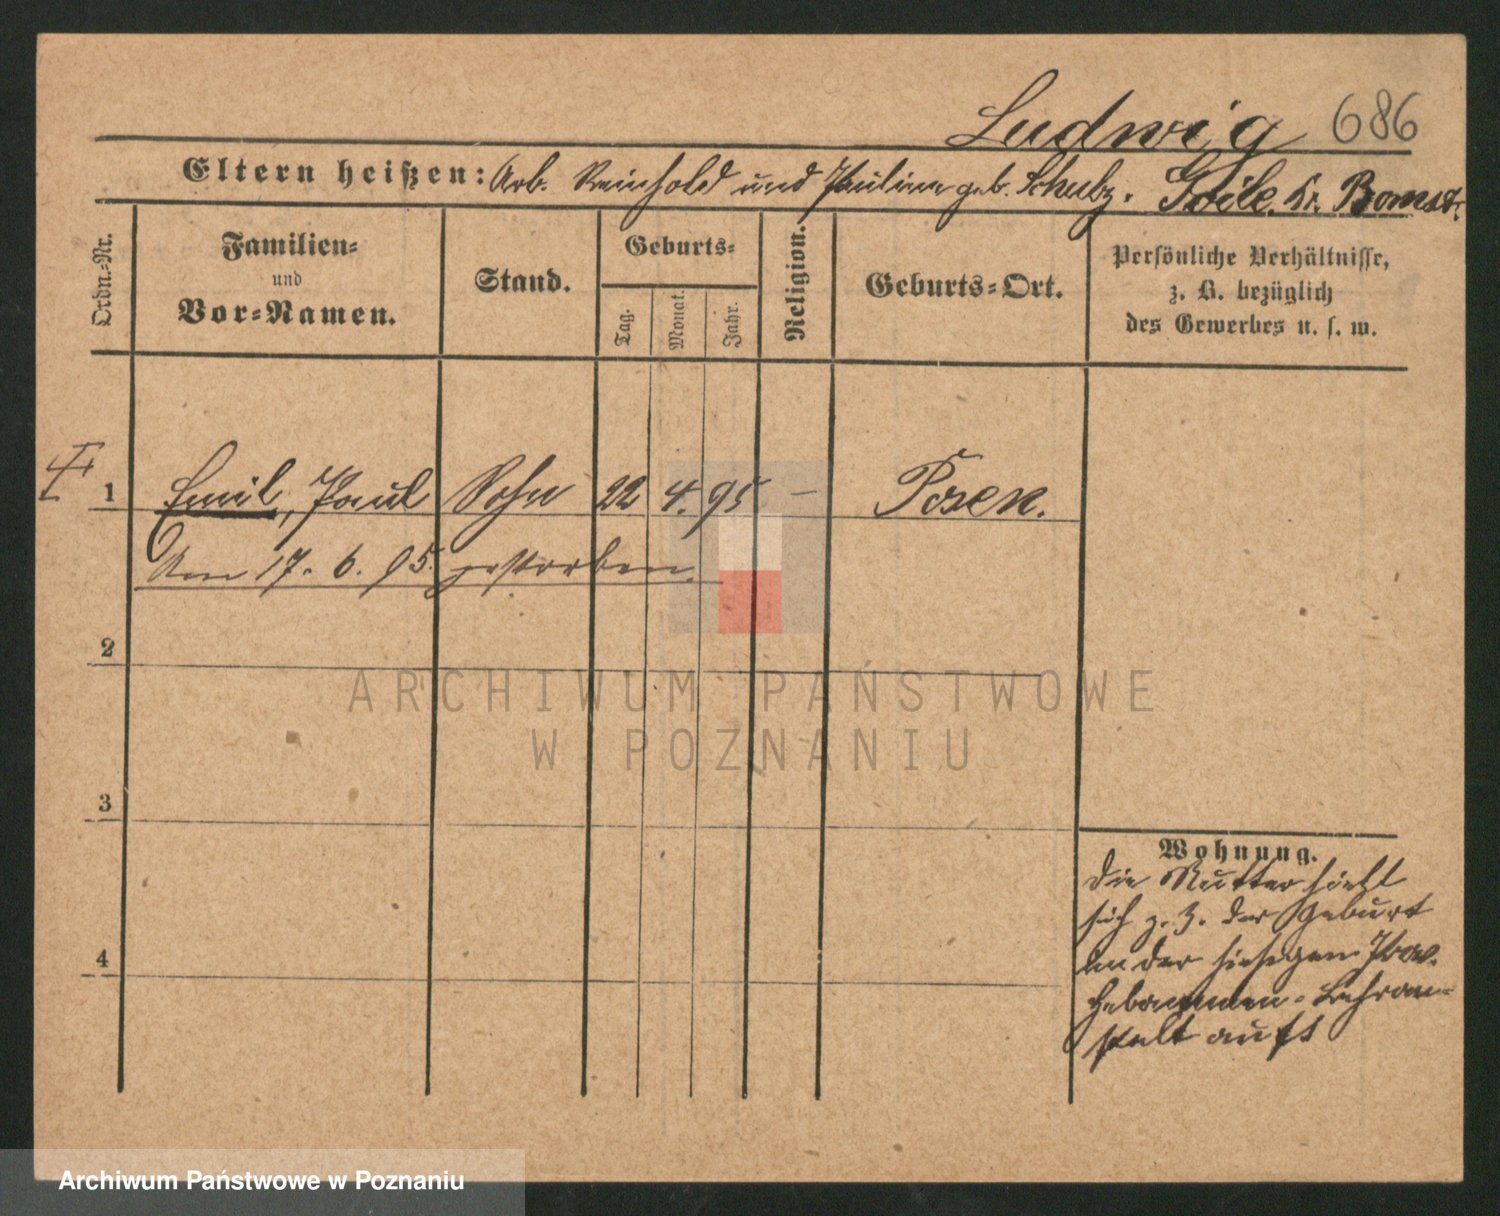 Ludwig 686
Eltern heißen: Arb. Reinhold und Pauline geb. Schulz. Goile. Kr. Bomst.
Ordn.-Nr.
Familien-
und
Vor-Namen.
Stand.
Geburts-
Tag.
Monat.
Jahr.
Religion.
Geburts-Ort.
Persönliche Verhältnisse,
z. B. bezüglich
des Gewerbes u. s. w.
1 Emil, Paul Sohn 22 4. 95 – Posen.
Am 17. 6. 95. gestorben.
2
3
4
Wohnung.
Die Mutter hielt
sich z. Z. der Geburt
in der hiesigen Prov.
Hebammen-Lehran-
stalt auf
ARCHIWUM PAŃSTWOWE
W POZNANIU
Archiwum Państwowe w Poznaniu